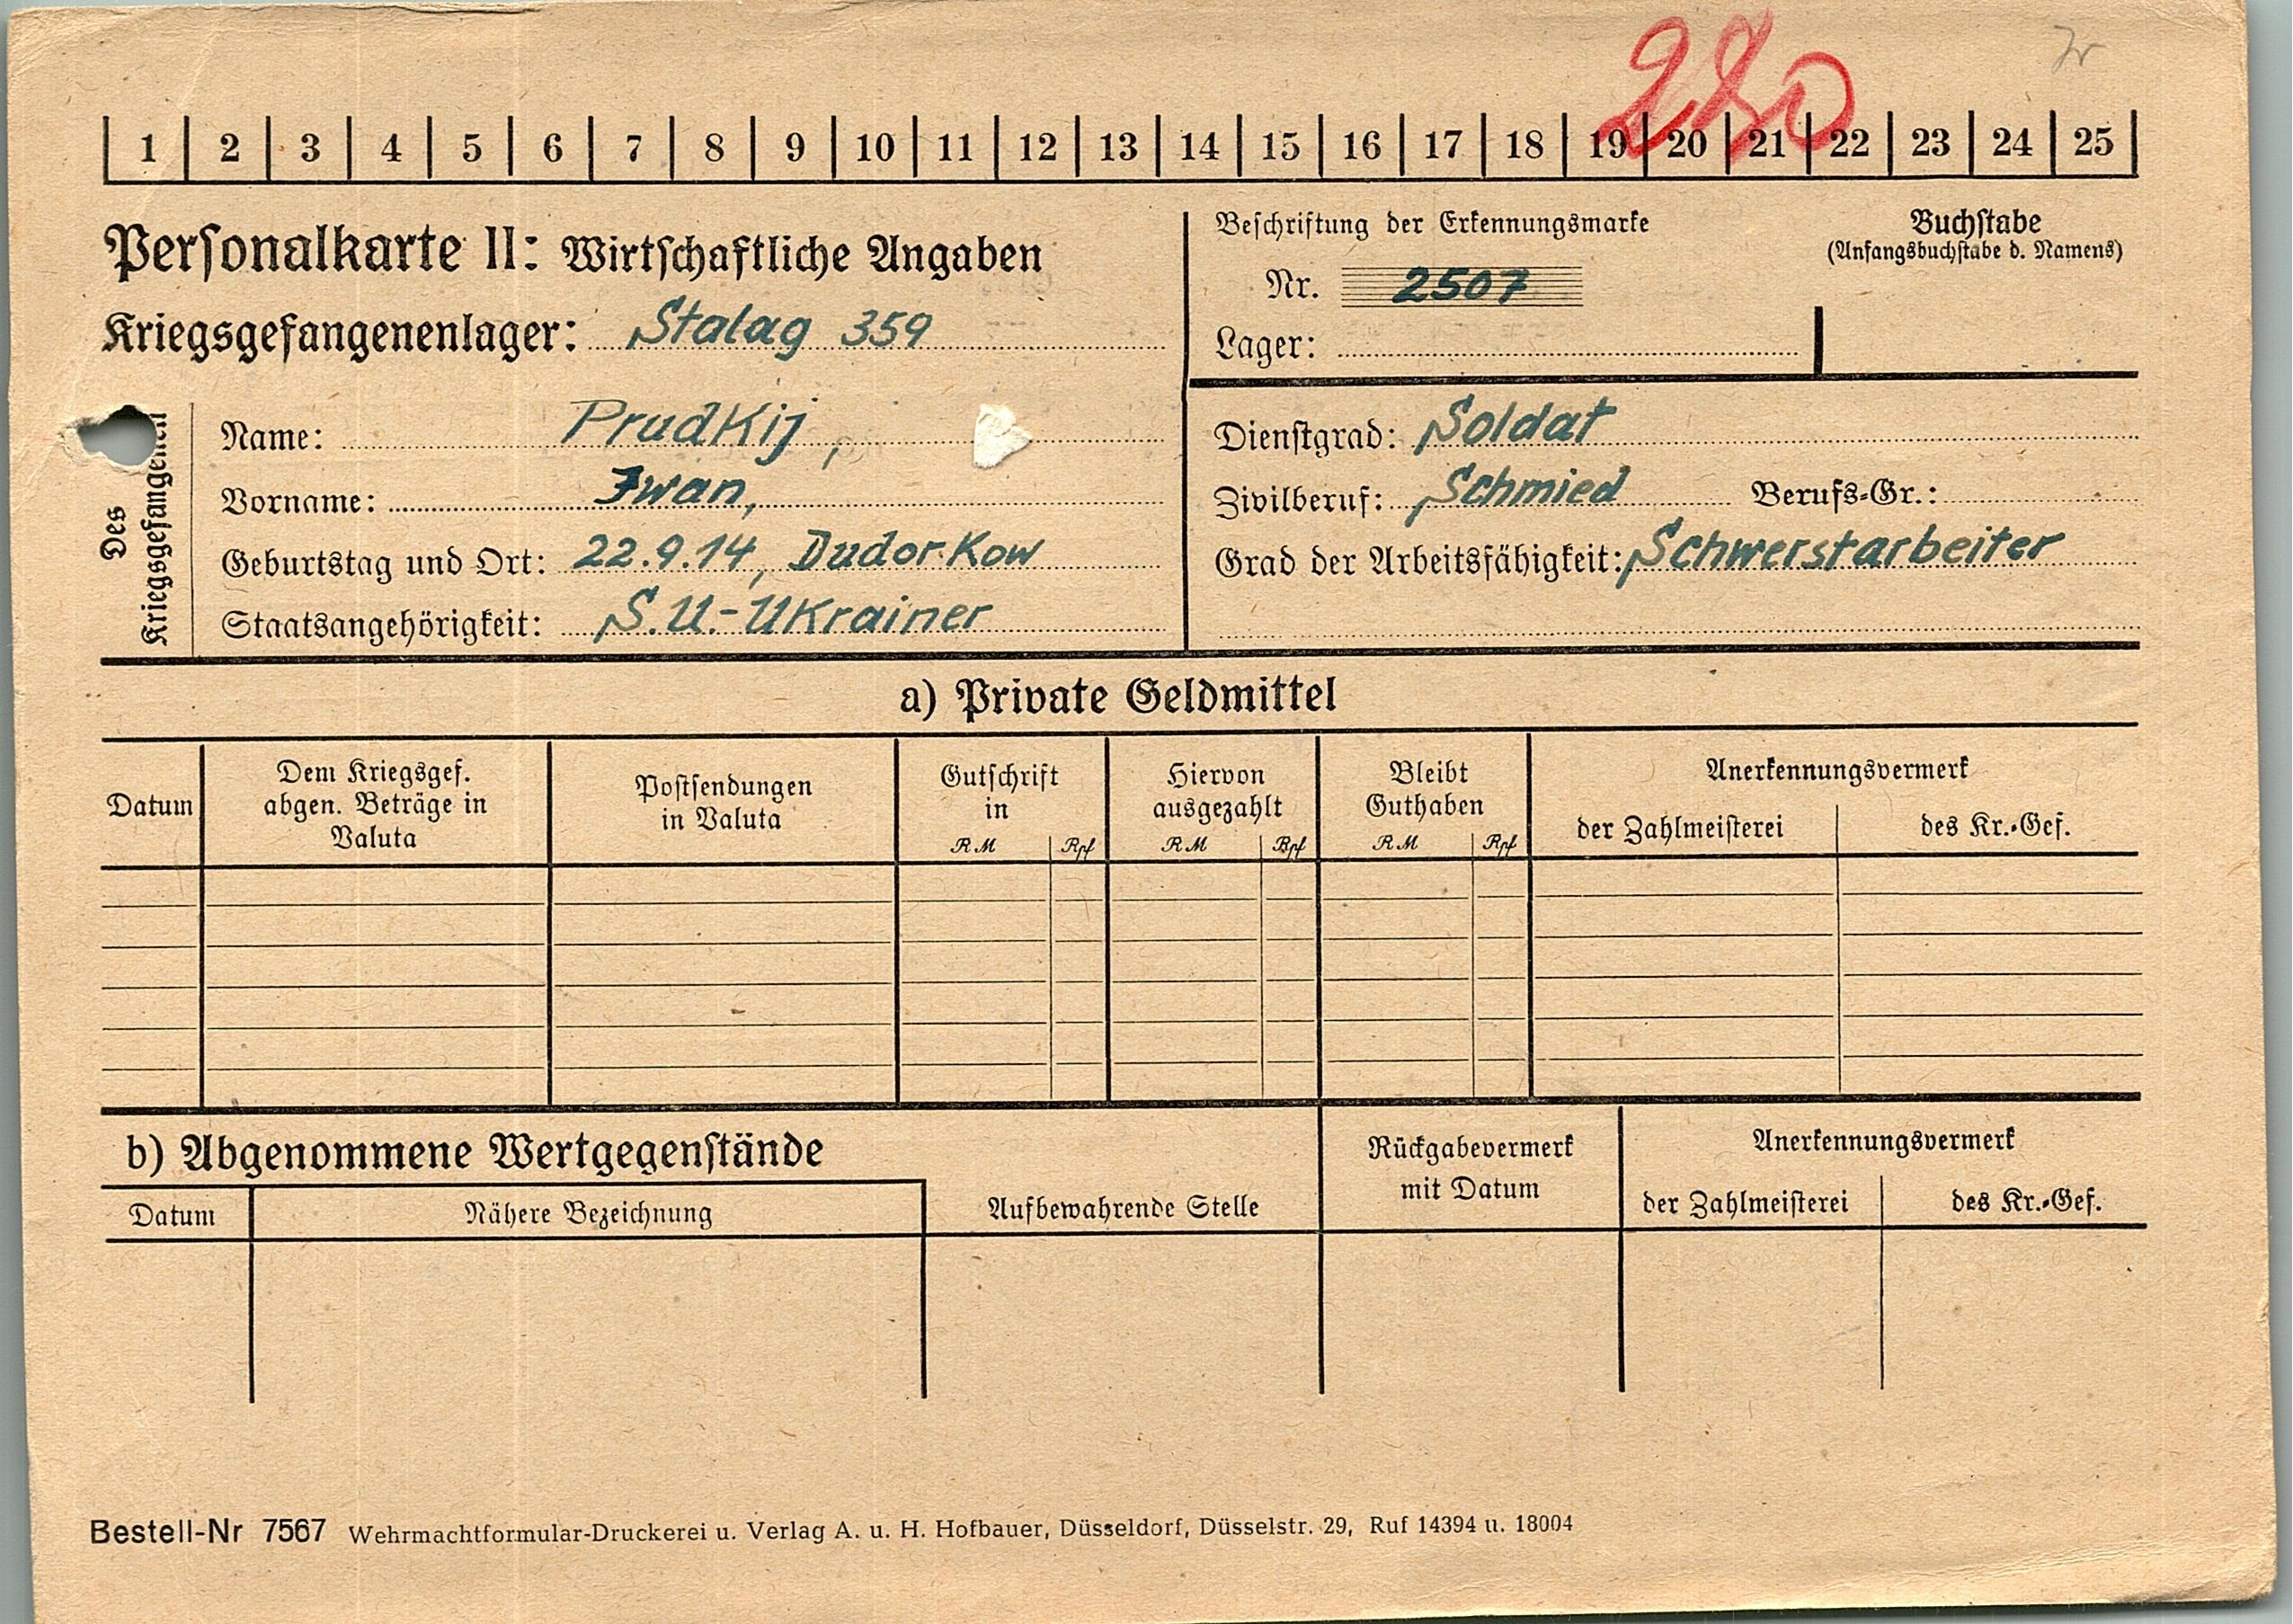 280
1 2 3 4 5 6 7 8 9 10 11 12 13 14 15 16 17 18 19 20 21 22 23 24 25
Personalkarte II: Wirtschaftliche Angaben
Kriegsgefangenenlager: Stalag 359
Beschriftung der Erkennungsmarke
Nr. 2507
Lager:
Buchstabe
(Anfangsbuchstabe d. Namens)
Des
Kriegsgefangenen
Name: Prudkij,
Vorname: Iwan,
Geburtstag und Ort: 22.9.14, Dudorkow
Staatsangehörigkeit: S.U.-Ukrainer
Dienstgrad: Soldat
Zivilberuf: Schmied Berufs-Gr.:
Grad der Arbeitsfähigkeit: Schwerstarbeiter
a) Private Geldmittel
Datum
Dem Kriegsgef.
abgen. Beträge in
Valuta
Postsendungen
in Valuta
Gutschrift
in
RM Rpf
Hiervon
ausgezahlt
RM Rpf
Bleibt
Guthaben
RM Rpf
Anerkennungsvermerk
der Zahlmeisterei des Kr.-Gef.
b) Abgenommene Wertgegenstände
Datum Nähere Bezeichnung
Aufbewahrende Stelle
Rückgabevermerk
mit Datum
Anerkennungsvermerk
der Zahlmeisterei des Kr.-Gef.
Bestell-Nr 7567 Wehrmachtformular-Druckerei u. Verlag A. u. H. Hofbauer, Düsseldorf, Düsselstr. 29, Ruf 14394 u. 18004